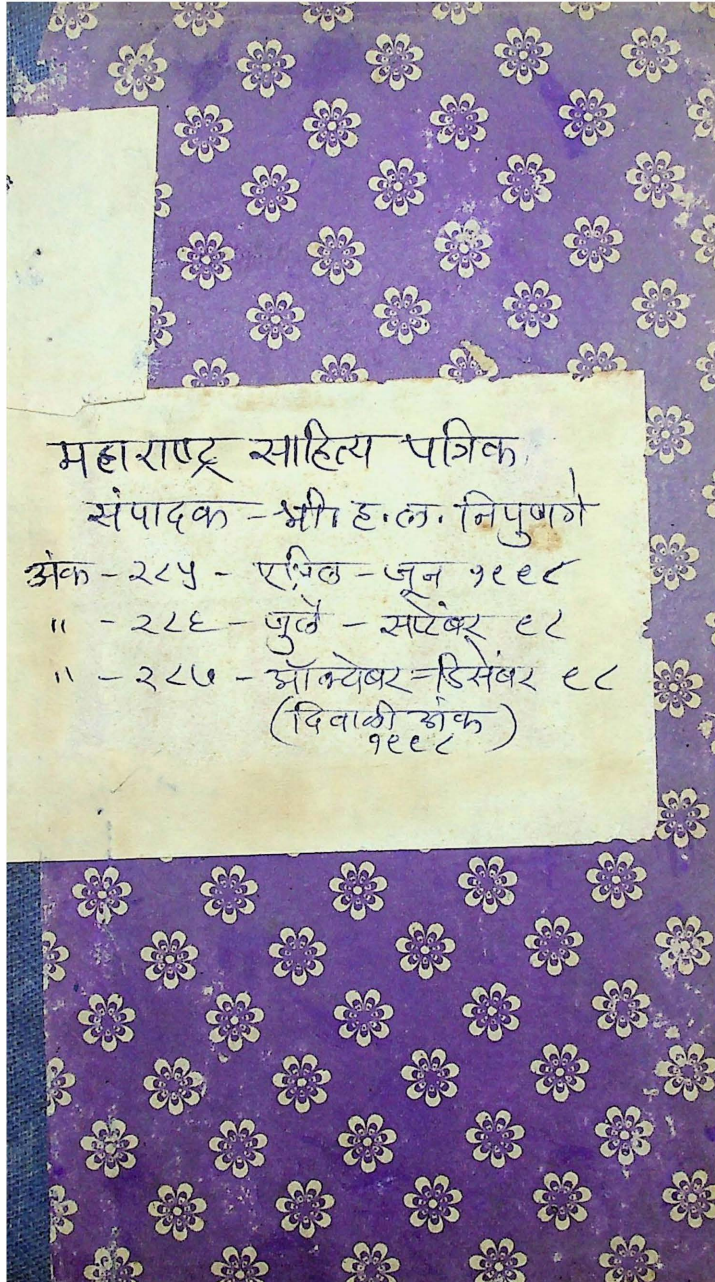 महाराष्ट्र साहित्य पत्रिक
संपादक - श्री. ह. ल. निपुणगे
अंक - २८५ - एप्रिल - जून १९९८
" - २८६ - जुलै - सप्टेंबर ९८
" - २८७ - ऑक्टोबर = डिसेंबर ९८
(दिवाळी अंक)
१९९८